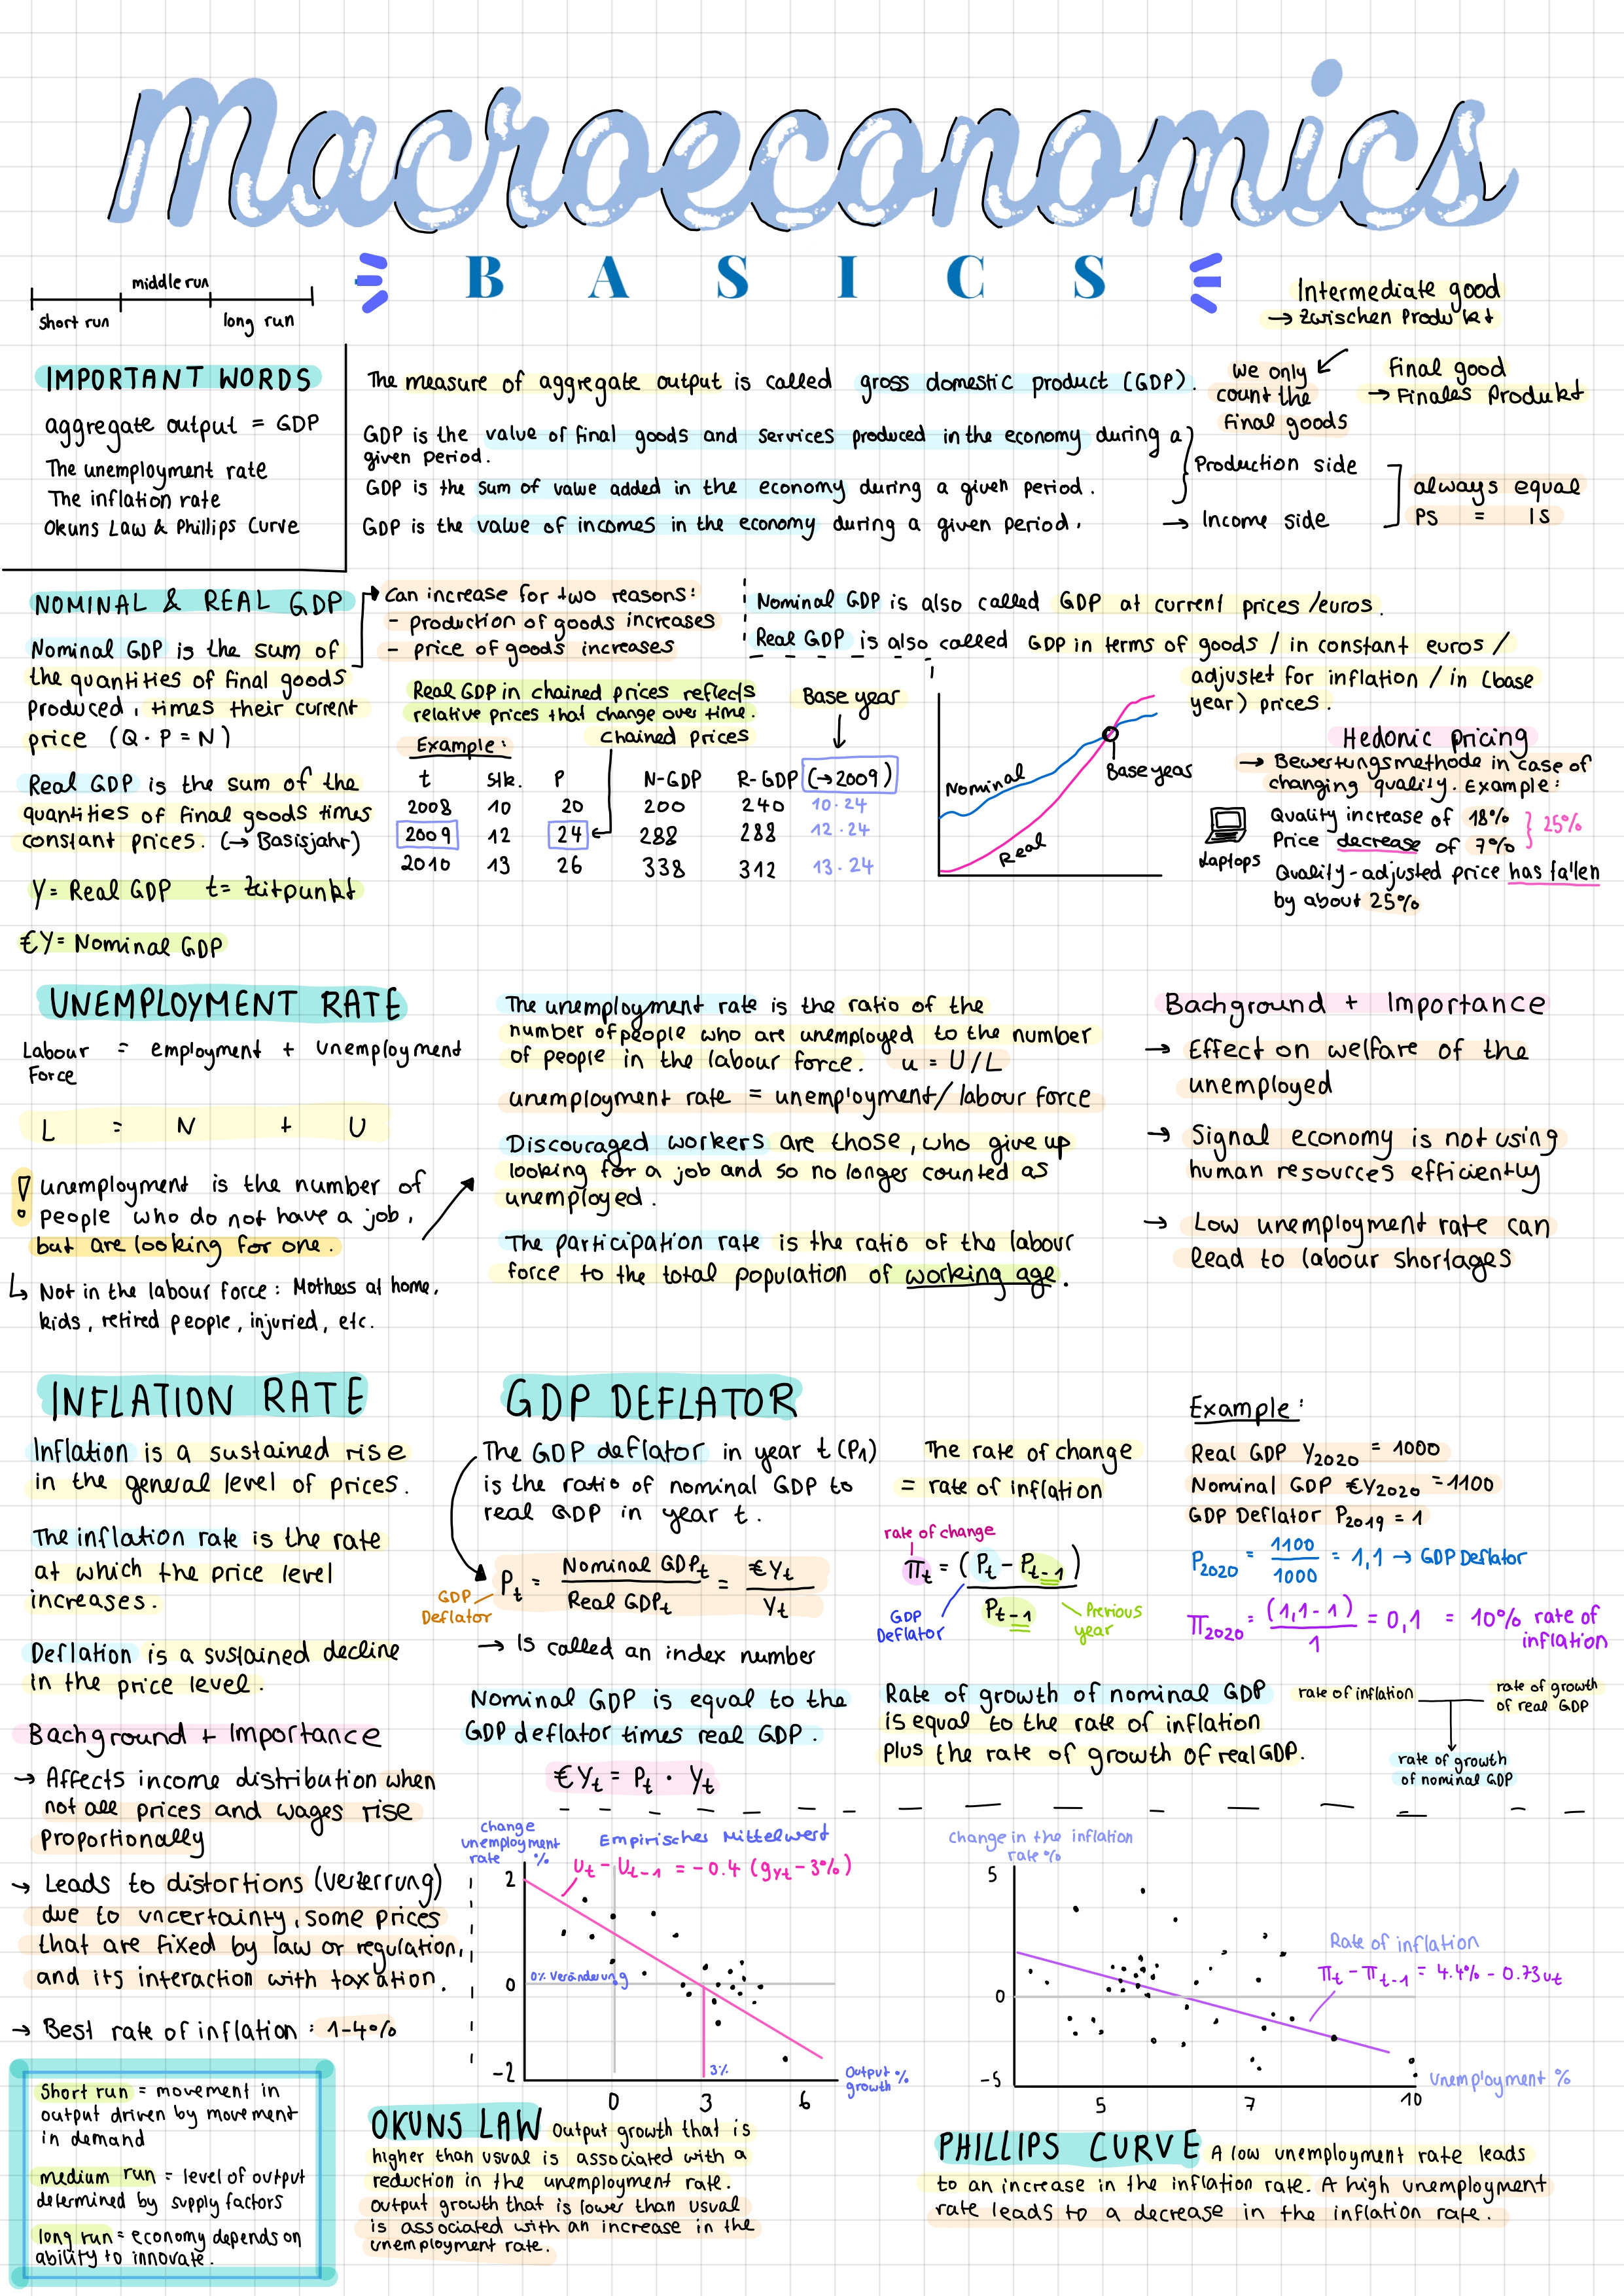 Macroeconomics
BASICS
middle run
short run
long run
Intermediate good
→ Zwischen Produkt
we only
count the
final goods
final good
→ Finales Produkt
IMPORTANT WORDS
aggregate output = GDP
The unemployment rate
The inflation rate
Okuns Law & Phillips Curve
The measure of aggregate output is called gross domestic product (GDP).
GDP is the value of final goods and services produced in the economy during a
given period.
GDP is the sum of value added in the economy during a given period.
GDP is the value of incomes in the economy during a given period.
Production side
→ Income side
always equal
PS = IS
NOMINAL & REAL GDP
Nominal GDP is the sum of
the quantities of final goods
produced, times their current
price (Q · P = N)
Real GDP is the sum of the
quantities of final goods times
constant prices. (→ Basisjahr)
Y = Real GDP t = Zeitpunkt
€Y = Nominal GDP
can increase for two reasons:
- production of goods increases
- price of goods increases
Nominal GDP is also called GDP at current prices /euros.
Real GDP is also called GDP in terms of goods / in constant euros /
adjustet for inflation / in (base
year) prices.
Real GDP in chained prices reflects
relative prices that change over time.
chained prices
Base year
Example:
t Stk. P N-GDP R-GDP (→2009)
2008 10 20 200 240 10·24
2009 12 24 288 288 12·24
2010 13 26 338 312 13·24
Nominal
Real
Base year
Hedonic pricing
→ Bewertungsmethode in case of
changing quality. Example:
Laptops
Quality increase of 18%
Price decrease of 7%
25%
Quality-adjusted price has fallen
by about 25%
UNEMPLOYMENT RATE
Labour = employment + unemployment
Force
L = N + U
! unemployment is the number of
people who do not have a job,
but are looking for one.
↳ Not in the labour force: Mothers at home,
kids, retired people, injuried, etc.
The unemployment rate is the ratio of the
number of people who are unemployed to the number
of people in the labour force. u = U/L
unemployment rate = unemployment/labour force
Discouraged workers are those, who give up
looking for a job and so no longer counted as
unemployed.
The participation rate is the ratio of the labour
force to the total population of working age.
Bachground + Importance
→ Effect on welfare of the
unemployed
→ Signal economy is not using
human resources efficiently
→ Low unemployment rate can
lead to labour shortages
INFLATION RATE
Inflation is a sustained rise
in the general level of prices.
The inflation rate is the rate
at which the price level
increases.
Deflation is a sustained decline
in the price level.
Bachground + Importance
→ Affects income distribution when
not all prices and wages rise
proportionally
→ Leads to distortions (Verzerrung)
due to uncertainty, some prices
that are fixed by law or regulation,
and its interaction with taxation.
→ Best rate of inflation: 1-4%
short run = movement in
output driven by movement
in demand
medium run = level of output
determined by supply factors
long run = economy depends on
ability to innovate.
GDP DEFLATOR
The GDP deflator in year t (P1)
is the ratio of nominal GDP to
real GDP in year t.
GDP
Deflator
Pt = Nominal GDPt / Real GDPt = €Yt / Yt
→ Is called an index number
Nominal GDP is equal to the
GDP deflator times real GDP.
€Yt = Pt · Yt
The rate of change
= rate of inflation
rate of change
πt = (Pt - Pt-1) / Pt-1
GDP
Deflator
Previous
year
Rate of growth of nominal GDP
is equal to the rate of inflation
plus the rate of growth of real GDP.
Example:
Real GDP Y2020 = 1000
Nominal GDP €Y2020 = 1100
GDP Deflator P2019 = 1
P2020 = 1100 / 1000 = 1,1 → GDP Deflator
π2020 = (1,1-1) / 1 = 0,1 = 10% rate of
inflation
rate of inflation
rate of growth
of real GDP
rate of growth
of nominal GDP
Change
unemployment
rate %
Empirisches Mittelwert
ut - ut-1 = -0.4 (gyt - 3%)
2
0
0% Veränderung
-2
3%
0 3 6
Output %
growth
OKUNS LAW Output growth that is
higher than usual is associated with a
reduction in the unemployment rate.
Output growth that is lower than usual
is associated with an increase in the
unemployment rate.
Change in the inflation
rate %
5
0
-5
Rate of inflation
πt - πt-1 = 4.4% - 0.73ut
5 7 10
Unemployment %
PHILLIPS CURVE A low unemployment rate leads
to an increase in the inflation rate. A high unemployment
rate leads to a decrease in the inflation rate.